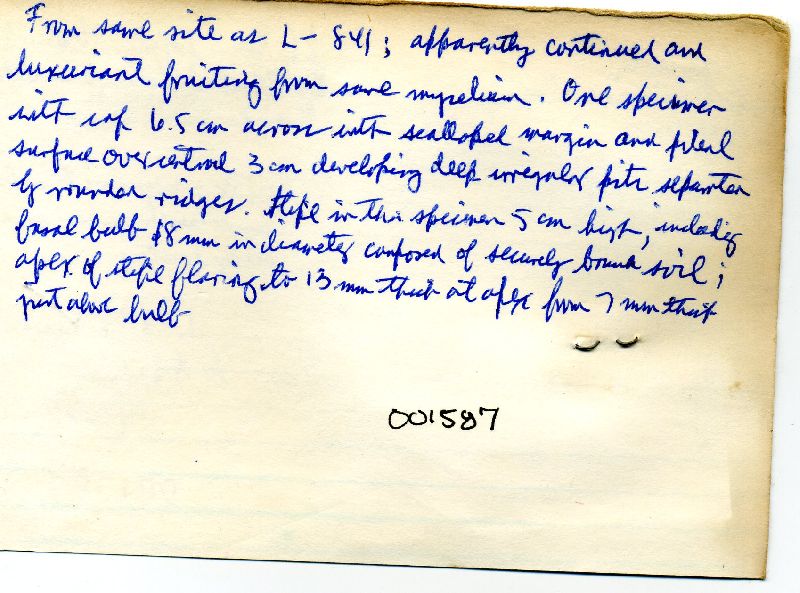 From same site as L-841; apparently continued and
luxuriant fruiting from same mycelium. One specimen
with cap 6.5 cm across with scalloped margin and pileal
surface over central 3 cm developing deep irregular pits separated
by rounded ridges. Stipe in this specimen 5 cm high, including
basal bulb 18 mm in diameter composed of securely bound soil;
apex of stipe flaring to 13 mm thick at apex from 7 mm thick
just above bulb
001587